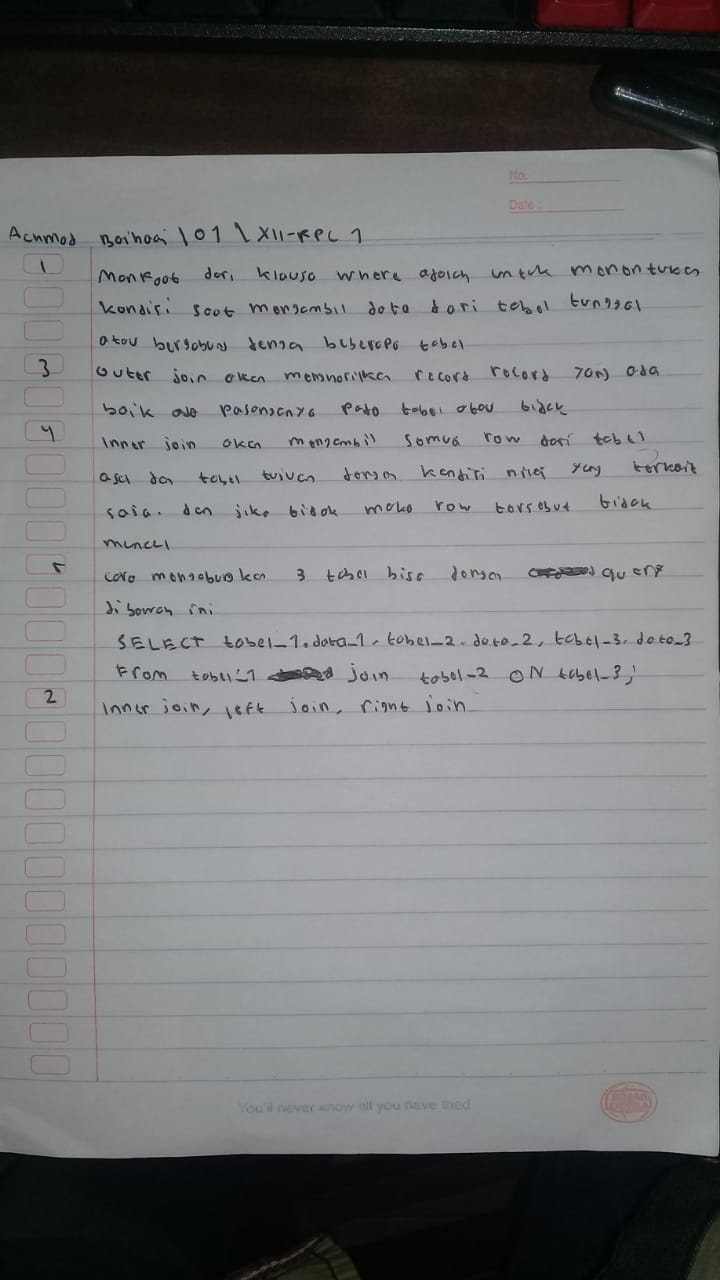 No.
Date :
Achmad Baihaqi \ 01 \ XII-RPL 1
1 Manfaat dari klausa where adalah untuk menentukan
kondisi saat mengambil data dari tabel tunggal
atau bergabung dengan beberapa tabel
3 outer join akan menampilkan record record yang ada
baik ada pasangannya pada tabel atau tidak
4 inner join akan mengambil semua row dari tabel
asal dan tabel tujuan dengan kondisi nilai yang terkait
saja. dan jika tidak maka row tersebut tidak
muncul
5 cara menggabungkan 3 tabel bisa dengan query
dibawah ini
SELECT tabel_1.data_1, tabel_2.data_2, tabel_3.data_3
From tabel_1 join tabel_2 ON tabel_3;
2 inner join, left join, right join
You'll never know till you have tried